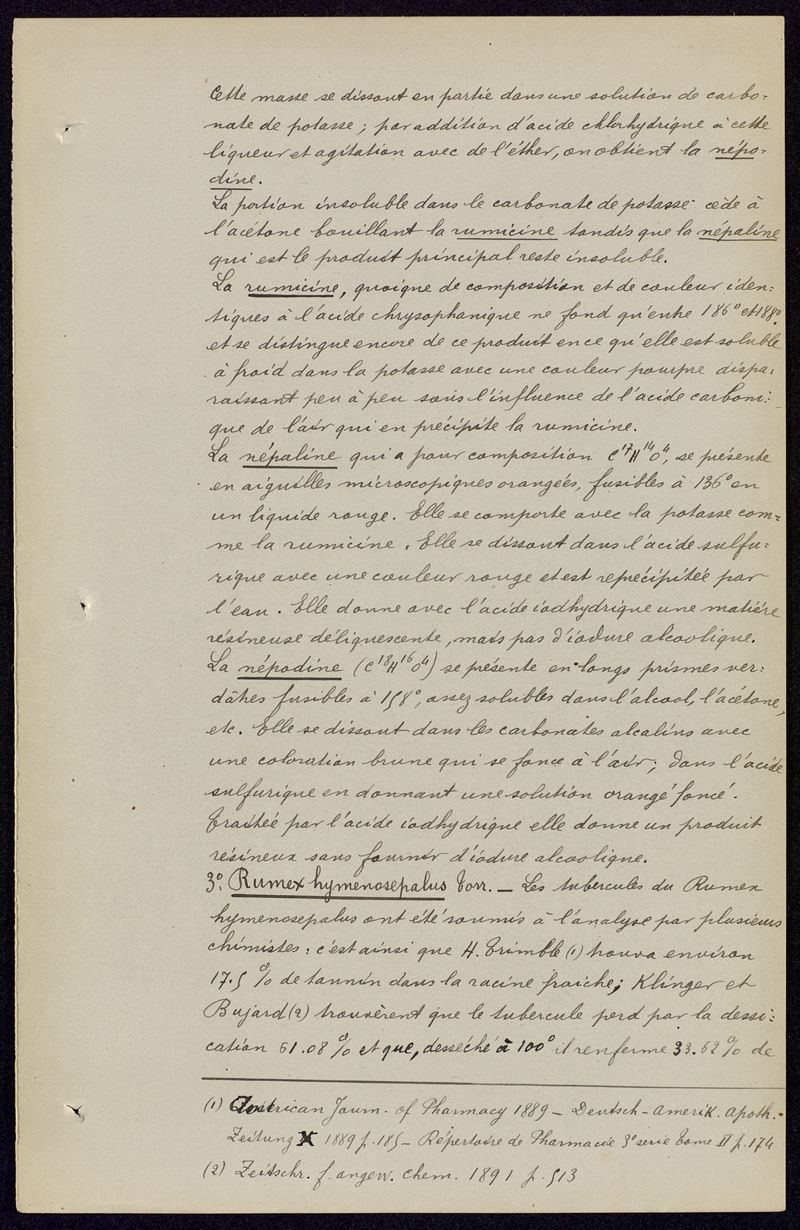 Cette masse se dissout en partie dans une solution de carbo-
nate de potasse; par addition d'acide chlorhydrique à cette
liqueur et agitation avec de l'éther, on obtient la népo-
dine.
La portion insoluble dans le carbonate de potasse cède à
l'acétone bouillant la rumicine tandis que la népaline
qui est le produit principal reste insoluble.
La rumicine, quoique de composition et de couleur iden-
tiques à l'acide chrysophanique ne fond qu'entre 186° et 188°
et se distingue encore de ce produit en ce qu'elle est soluble
à froid dans la potasse avec une couleur pourpre dispa-
raissant peu à peu sous l'influence de l'acide carboni-
que de l'air qui en précipite la rumicine.
La népaline qui a pour composition C¹⁷H¹⁴O⁴, se présente
en aiguilles microscopiques orangées, fusibles à 136° en
un liquide rouge. Elle se comporte avec la potasse com-
me la rumicine. Elle se dissout dans l'acide sulfu-
rique avec une couleur rouge et est reprécipitée par
l'eau. Elle donne avec l'acide iodhydrique une matière
résineuse déliquescente, mais pas d'iodure alcoolique.
La népodine (C¹⁸H¹⁶O⁴) se présente en longs prismes ver-
dâtres fusibles à 158°, assez solubles dans l'alcool, l'acétone,
etc. Elle se dissout dans les carbonates alcalins avec
une coloration brune qui se fonce à l'air; dans l'acide
sulfurique en donnant une solution orangé foncé.
Traitée par l'acide iodhydrique elle donne un produit
résineux sans fournir d'iodure alcoolique.
3°. Rumex hymenosepalus Torr. — Les tubercules du Rumex
hymenosepalus ont été soumis à l'analyse par plusieurs
chimistes: c'est ainsi que H. Trimble (1) trouva environ
17.5 % de tannin dans la racine fraiche; Klinger et
Bujard (2) trouvèrent que le tubercule perd par la dessi-
cation 61.08 % et que, desséché à 100° il renferme 33.62 % de
(1) American Journ. of Pharmacy 1889 — Deutsch-Amerik. Apoth.-
Zeitung X 1889 p. 185 — Répertoire de Pharmacie 3e serie Tome II p. 174
(2) Zeitschr. f. angew. Chem. 1891 p. 513